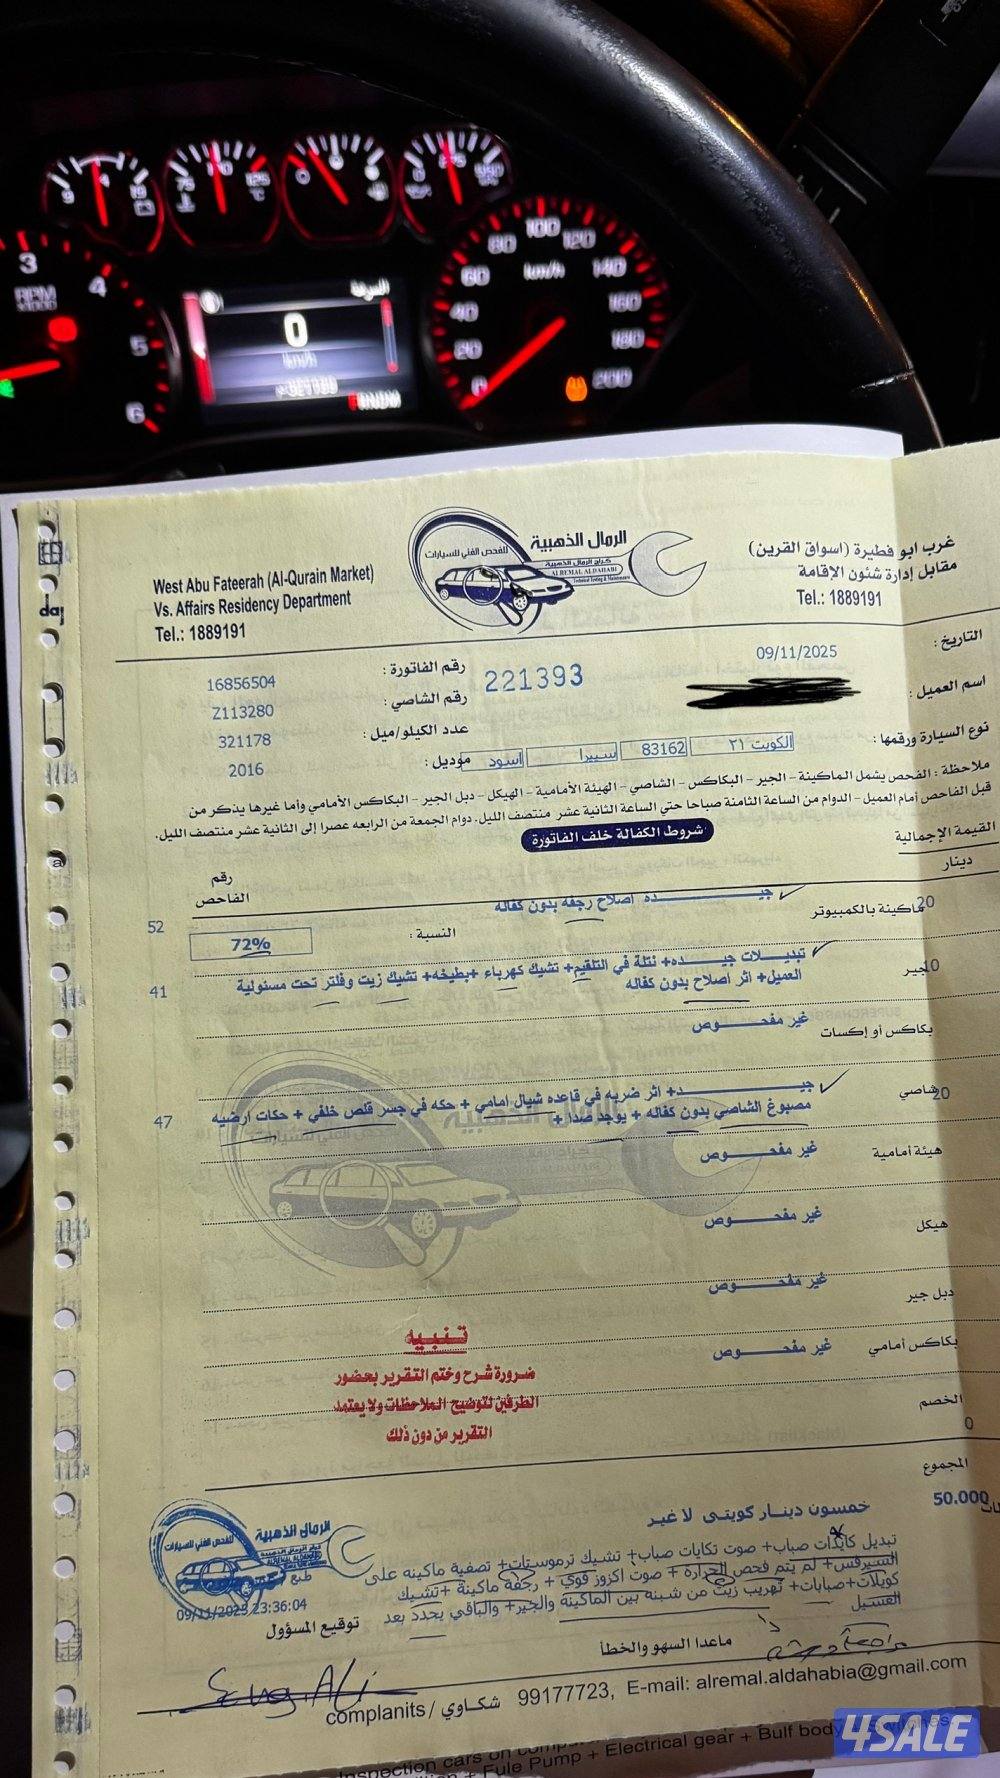 3
4
5
6
RPM
x1000
السرعة
0
km/h
0
20
40
60
80
100
120
140
160
180
200
km/h
125
°C
West Abu Fateerah (Al-Qurain Market)
Vs. Affairs Residency Department
Tel.: 1889191
الرمال الذهبية
للفحص الفني للسيارات
كراج الرمال الذهبية
ALREMAL ALDAHABI
Technical Testing & Maintenance
غرب ابو فطيرة (اسواق القرين)
مقابل إدارة شئون الإقامة
Tel.: 1889191
التاريخ : 09/11/2025
رقم الفاتورة : 16856504
221393
اسم العميل :
رقم الشاصي : Z113280
عدد الكيلو/ميل : 321178
نوع السيارة ورقمها : الكويت ٢١ 83162 سييرا اسود
موديل : 2016
ملاحظة : الفحص يشمل الماكينة - الجير - البكاكس - الشاصي - الهيئة الأمامية - الهيكل - دبل الجير - البكاكس الأمامي وأما غيرها يذكر من
قبل الفاحص أمام العميل - الدوام من الساعة الثامنة صباحا حتي الساعة الثانية عشر منتصف الليل. دوام الجمعة من الرابعه عصرا إلى الثانية عشر منتصف الليل.
شروط الكفالة خلف الفاتورة
القيمة الإجمالية
دينار
رقم
الفاحص
20 ماكينة بالكمبيوتر
جيـــــده اصلاح رجفه بدون كفاله
52
النسبة : 72%
10 جير
تبديلات جيـــده+ نتلة في التلقيم+ تشيك كهرباء +بطيخه+ تشيك زيت وفلتر تحت مسئولية
العميل+ اثر اصلاح بدون كفاله
41
بكاكس أو إكسات
غير مفحــــوص
20 شاصي
جيـــــد+ اثر ضربه في قاعده شيال امامي + حكه في جسر قلص خلفي + حكات ارضيه
مصبوغ الشاصي بدون كفاله + يوجد صدا +
47
هيئة أمامية
غير مفحــــوص
هيكل
غير مفحــــوص
دبل جير
غير مفحــــوص
بكاكس أمامي
غير مفحــــوص
تنبيه
ضرورة شرح وختم التقرير بحضور
الطرفين لتوضيح الملاحظات ولا يعتمد
التقرير من دون ذلك
الخصم
0
المجموع
50.000
خمسون دينار كويتى لا غير
تبديل كايدات صباب+ صوت تكايات صباب+ تشيك ترموستات+ تصفية ماكينه على
السيرفس+ لم يتم فحص الحرارة + صوت اكزوز قوي + رجفه ماكينة +تشيك
كويلات+صبابات+ تهريب زيت من شنبه بين الماكينة والجير+ والباقي يحدد بعد
الغسيل
الرمال الذهبية
للفحص الفني للسيارات
كراج الرمال الذهبية
طبع
09/11/2025 23:36:04
توقيع المسؤول
ماعدا السهو والخطأ
Eng.Ali
complanits / شكاوي 99177723, E-mail: alremal.aldahabia@gmail.com
+ Fule Pump + Electrical gear + Bulf body
4SALE